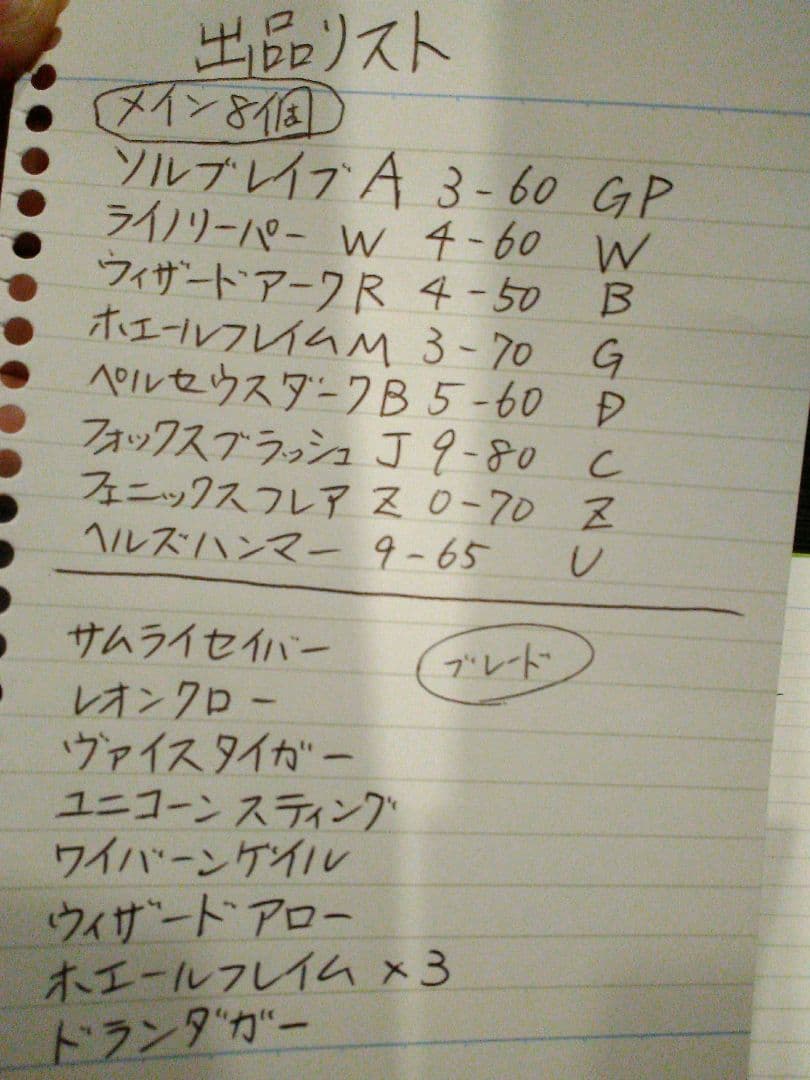 出品リスト
メイン8個
ソルブレイブA 3-60 GP
ライノリーパー W 4-60 W
ウィザードアークR 4-50 B
ホエールフレイムM 3-70 G
ペルセウスダークB 5-60 D
フォックスブラッシュ J 9-80 C
フェニックスフレア Z 0-70 Z
ヘルズハンマー 9-65 U
サムライセイバー ブレード
レオンクロー
ヴァイスタイガー
ユニコーンスティング
ワイバーンゲイル
ウィザードアロー
ホエールフレイム×3
ドランダガー